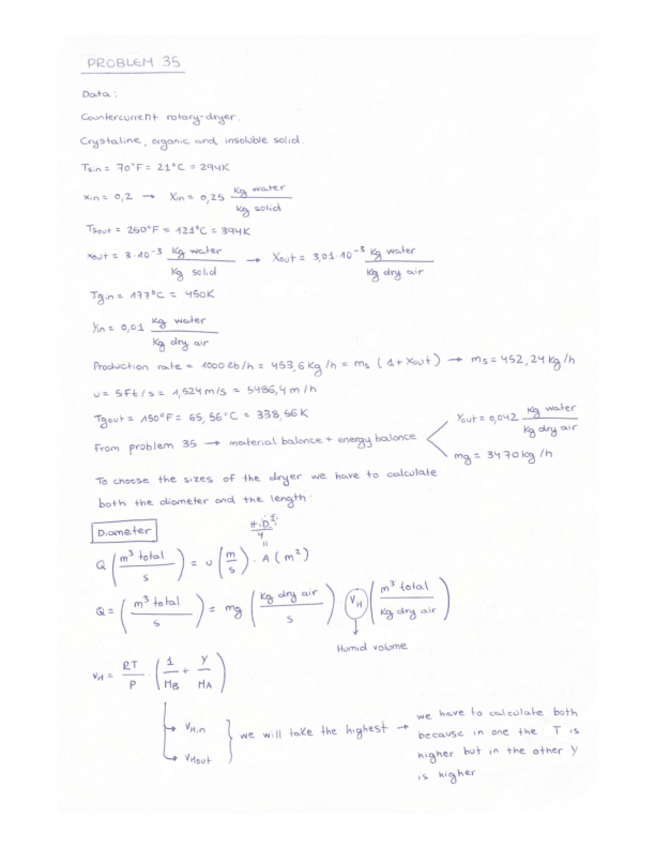 PROBLEM 35
Data:
Countercurrent rotary-dryer.
Crystaline, organic and insoluble solid.
Tsin = 70°F = 21°C = 294K
xin = 0,2 → Xin = 0,25 Kg water / Kg solid
Tsout = 250°F = 121°C = 394K
xout = 3·10⁻³ Kg water / Kg solid → Xout = 3,01·10⁻³ Kg water / Kg dry air
Tgin = 177°C = 450K
Yin = 0,01 Kg water / Kg dry air
Production rate = 1000 lb/h = 453,6 Kg/h = ms (1+Xout) → ms = 452,24 Kg/h
u = 5 Ft/s = 1,524 m/s = 5486,4 m/h
Tgout = 150°F = 65,56°C = 338,56K
From problem 35 → material balance + energy balance
Yout = 0,042 Kg water / Kg dry air
mg = 3470 kg/h
To choose the sizes of the dryer we have to calculate
both the diameter and the length:
Diameter
Q (m³ total / s) = u (m / s) · A (m²)
Q = (m³ total / s) = mg (Kg dry air / s) · VH (m³ total / Kg dry air)
Humid volume
VH = RT / P · (1 / MB + Y / MA)
VH,in
VHout
we will take the highest →
we have to calculate both
because in one the T is
higher but in the other Y
is higher